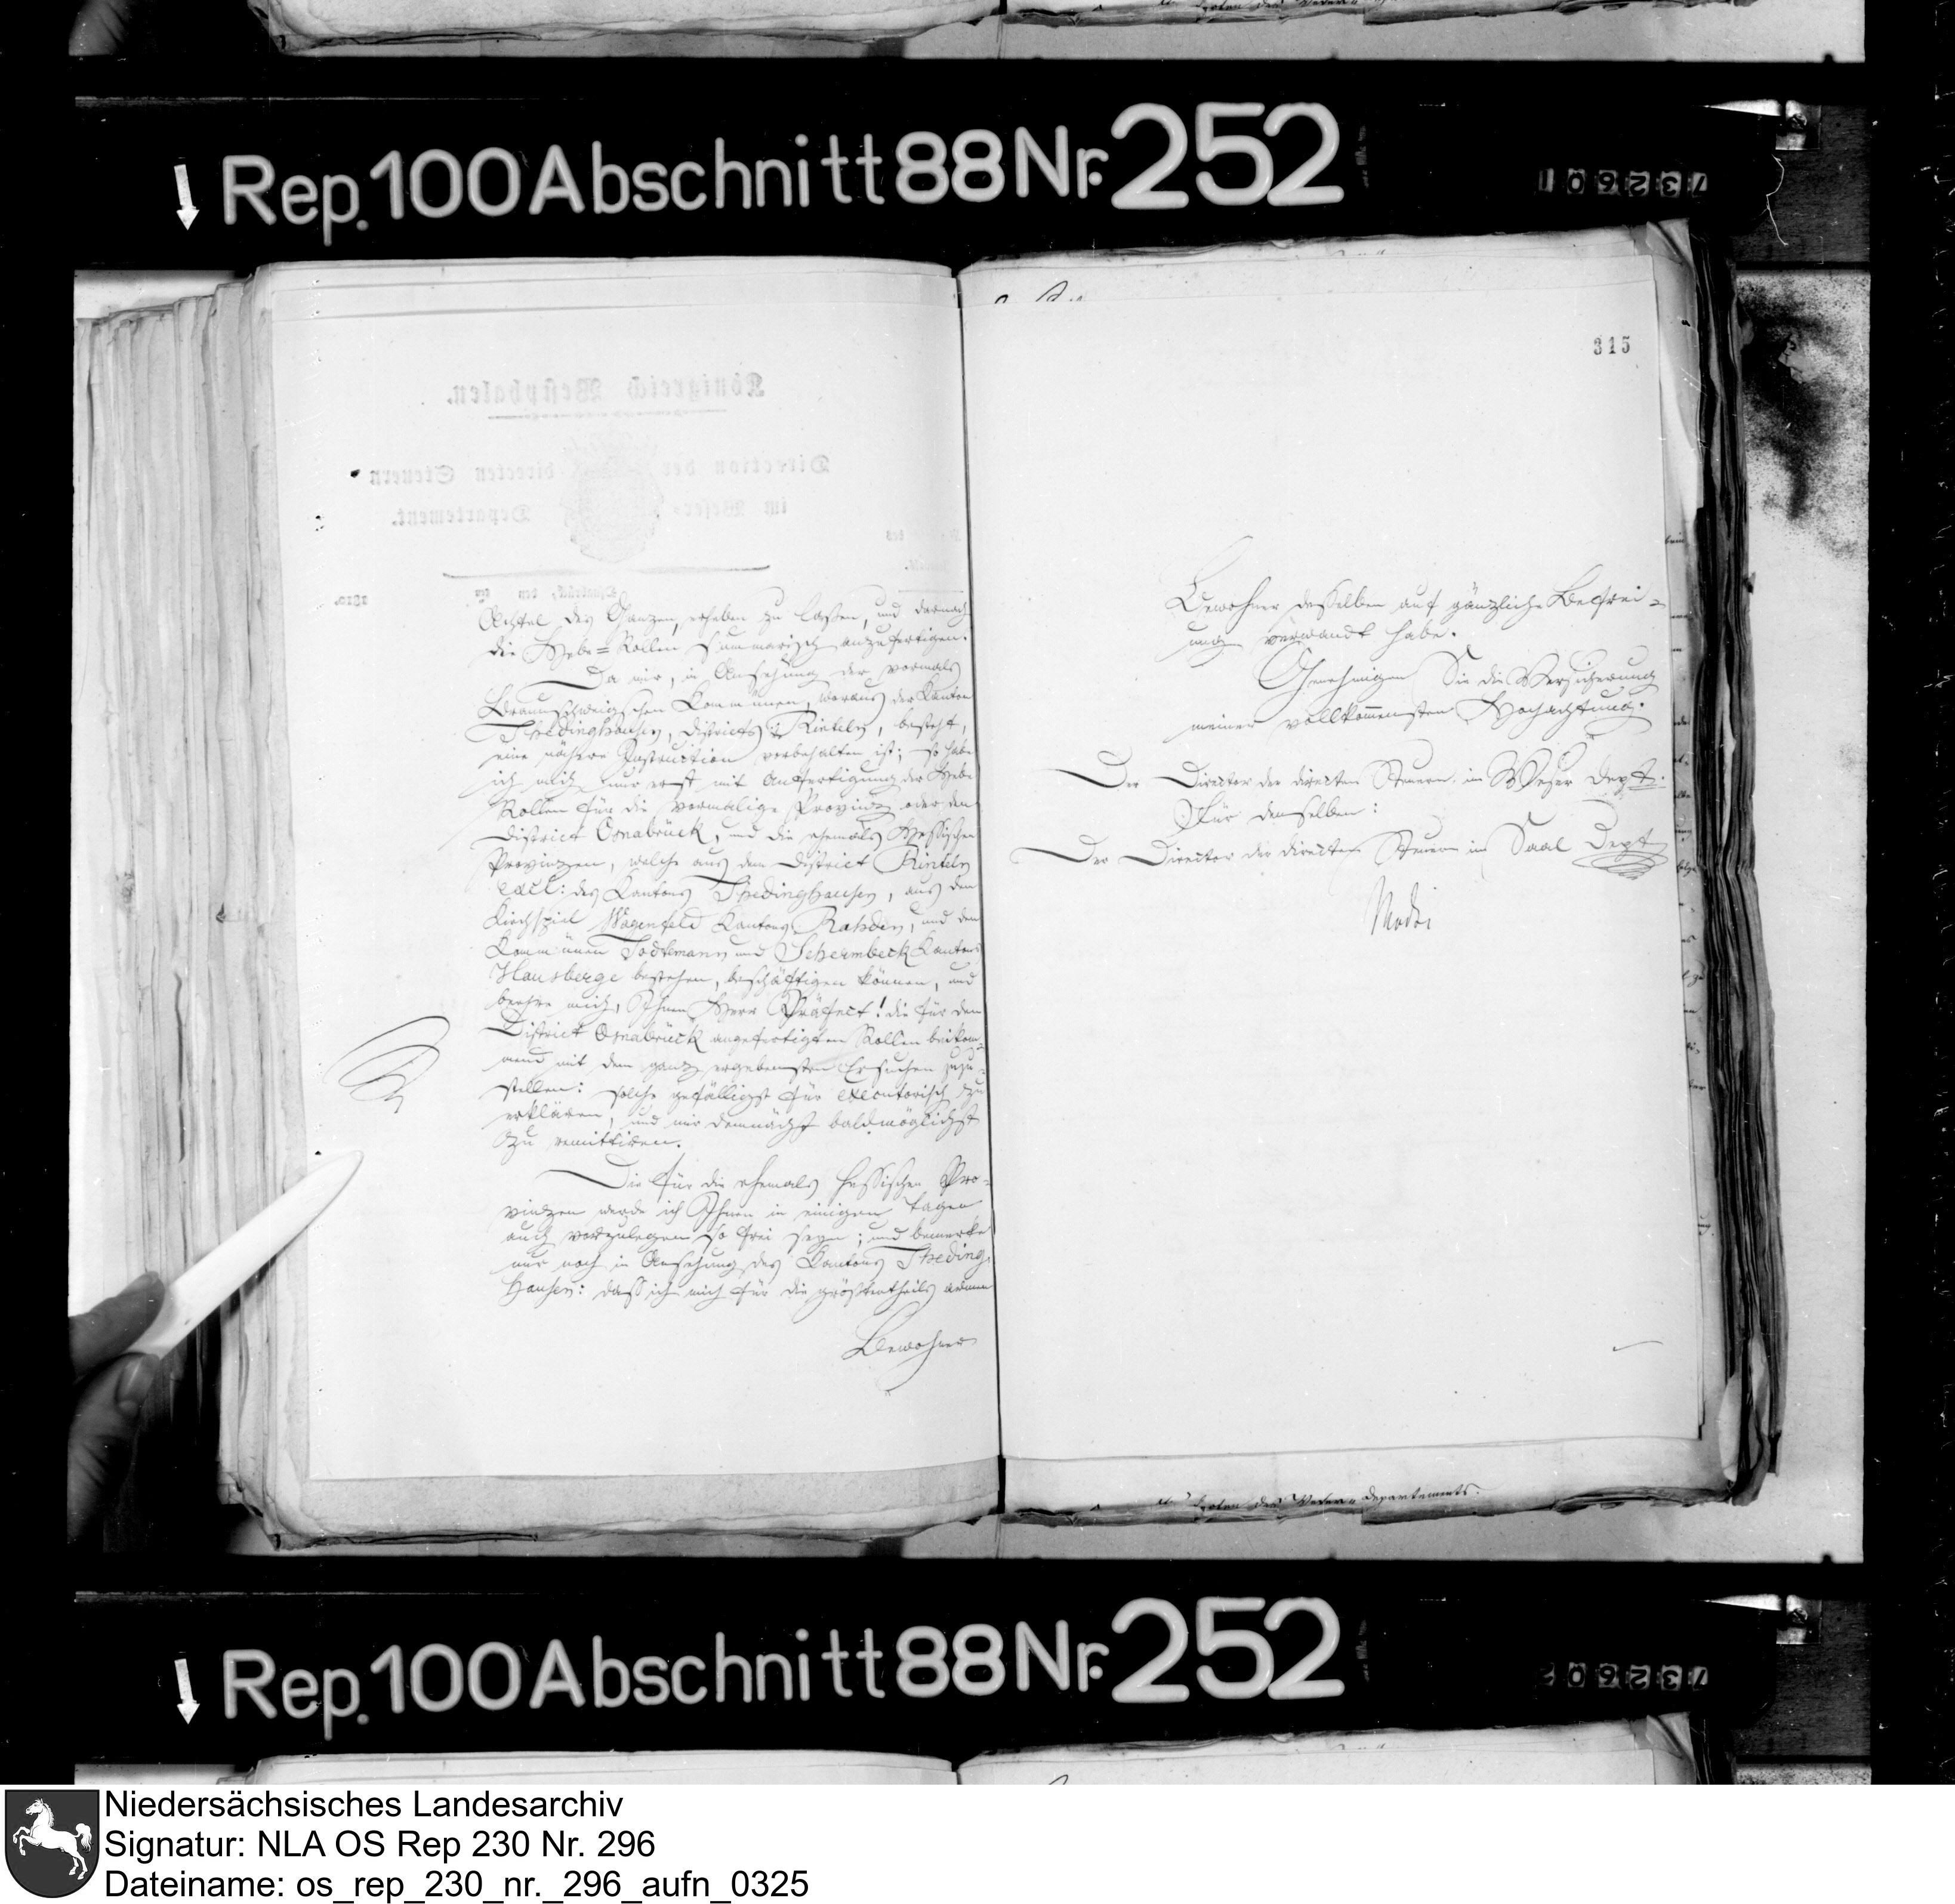 Rep. 100 Abschnitt 88 Nr. 252
315
Achtel des Ganzen, erheben zu laßen, und darnach
die Hebe=Rollen summarisch anzufertigen.
Da mir, in Ansehung der vormals
Braunschweigschen Kommünen, woraus der Kanton
Thedinghausen, Districts Rinteln, besteht,
eine nähere Instruction vorbehalten ist; so habe
ich mich nur erst mit Anfertigung der Hebe
Rollen für die vormalige Provinz oder den
District Osnabrück, und die ehemals Hessischen
Provinzen, welche aus dem District Rinteln
excl: des Kantons Thedinghausen, aus dem
Kirchspiel Wagenfeld Kantons Rahden, und den
Kommünen Todtemann und Schermbeck Kantons
Hausberge bestehen, beschäftigen können, und
beehre mich, Ihnen Herr Präfect! die für den
District Osnabrück angefertigten Rollen beikom=
mend mit dem ganz ergebensten Ersuchen zuzu=
stellen: solche gefälligst für executorisch zu
erklären, und mir demnächst baldmöglichst
zu remittiren.
Die für die ehemals Hessischen Pro=
vinzen werde ich Ihnen in einigen Tagen
auch vorzulegen so frei seyn; und bemerke
nur noch in Ansehung des Kantons Theding=
hausen: dass ich mich für die größtentheils armen
Bewohner
Bewohner desselben auf gänzliche Befrei=
ung verwandt habe.
Genehmigen Sie die Versicherung
meiner vollkommensten Hochachtung.
Der Director der directen Steuern im Weser Dept.
Für denselben:
Der Director der directen Steuern im Saal Dept
des Weser Departements.
Rep. 100 Abschnitt 88 Nr. 252
Niedersächsisches Landesarchiv
Signatur: NLA OS Rep 230 Nr. 296
Dateiname: os_rep_230_nr._296_aufn_0325